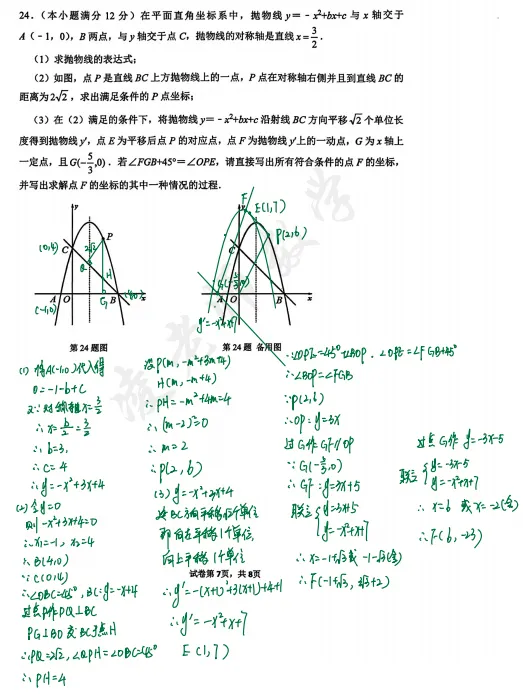 24.（本小题满分 12 分）在平面直角坐标系中，抛物线 y=﹣x²+bx+c 与 x 轴交于
A（﹣1，0），B 两点，与 y 轴交于点 C，抛物线的对称轴是直线 x=3/2．
（1）求抛物线的表达式；
（2）如图，点 P 是直线 BC 上方抛物线上的一点，P 点在对称轴右侧并且到直线 BC 的
距离为2√2，求出满足条件的 P 点坐标；
（3）在（2）满足的条件下，将抛物线 y=﹣x²+bx+c 沿射线 BC 方向平移√2个单位长
度得到抛物线 y′，点 E 为平移后点 P 的对应点，点 F 为抛物线 y′上的一动点，G 为 x 轴上
一定点，且 G(-5/3,0)．若∠FGB+45°=∠OPE，请直接写出所有符合条件的点 F 的坐标，
并写出求解点 F 的坐标的其中一种情况的过程．
y
(0,4)
C
2√2
P
Q
H
A
O
G
B
(4,0)
x
(-1,0)
第 24 题图
F
y
E(1,7)
C
P(2,6)
G(-5/3,0)
A
O
B
x
y'=-x²+x+7
第 24 题 备用图
(1) 将A(-1,0)代入得
0=-1-b+c
又∵对称轴x=3/2
∴x=b/2=3/2
∴b=3,
∴c=4
∴y=-x²+3x+4
(2) 令y=0
则-x²+3x+4=0
∴x₁=-1, x₂=4
∴B(4,0)
∵C(0,4)
∴∠OBC=45°, BC:y=-x+4
过点P作PQ⊥BC
PG⊥BO交BC于点H
∴PQ=2√2, ∠QPH=∠OBC=45°
∴PH=4
设P(m, -m²+3m+4)
H(m, -m+4)
∴PH=-m²+4m=4
∴(m-2)²=0
∴m=2
∴P(2,6)
(3) y=-x²+3x+4
沿BC方向平移√2个单位
即向左平移1个单位,
向上平移1个单位
试卷第7页，共8页
∴y'=-(x+1)²+3(x+1)+4+1
∴y'=-x²+x+7
E(1,7)
∵∠OPE=45°+∠BOP, ∠OPE=∠FGB+45°
∴∠BOP=∠FGB
∵P(2,6)
∴OP:y=3x
过G作GF//OP
∵G(-5/3,0)
∴GF:y=3x+5
联立{y=3x+5
y=-x²+x+7
∴x=-1+√3或-1-√3(舍)
∴F(-1+√3, 3√3+2)
过点G作y=-3x-5
联立{y=-3x-5
y=-x²+x+7
∴x=6或x=-2(舍)
∴F(6,-23)